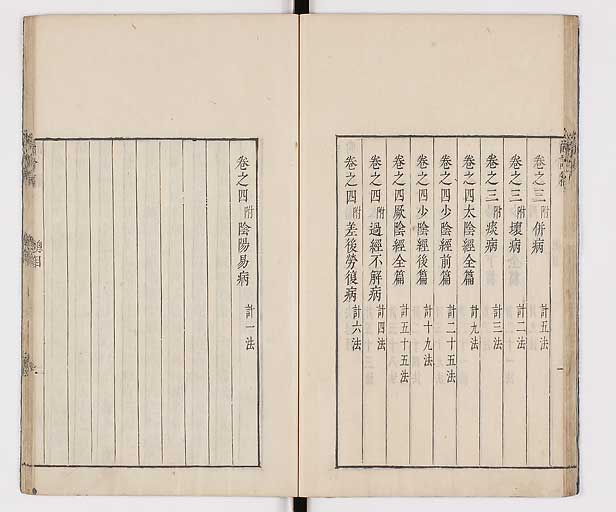 卷之三附併病 計五法
卷之三附壞病 計二法
卷之三附痰病 計三法
卷之四太陰經全篇 計九法
卷之四少陰經前篇 計二十五法
卷之四少陰經後篇 計十九法
卷之四厥陰經全篇 計五十五法
卷之四附過經不解病 計四法
卷之四附差後勞復病 計六法
卷之四附陰陽易病 計一法